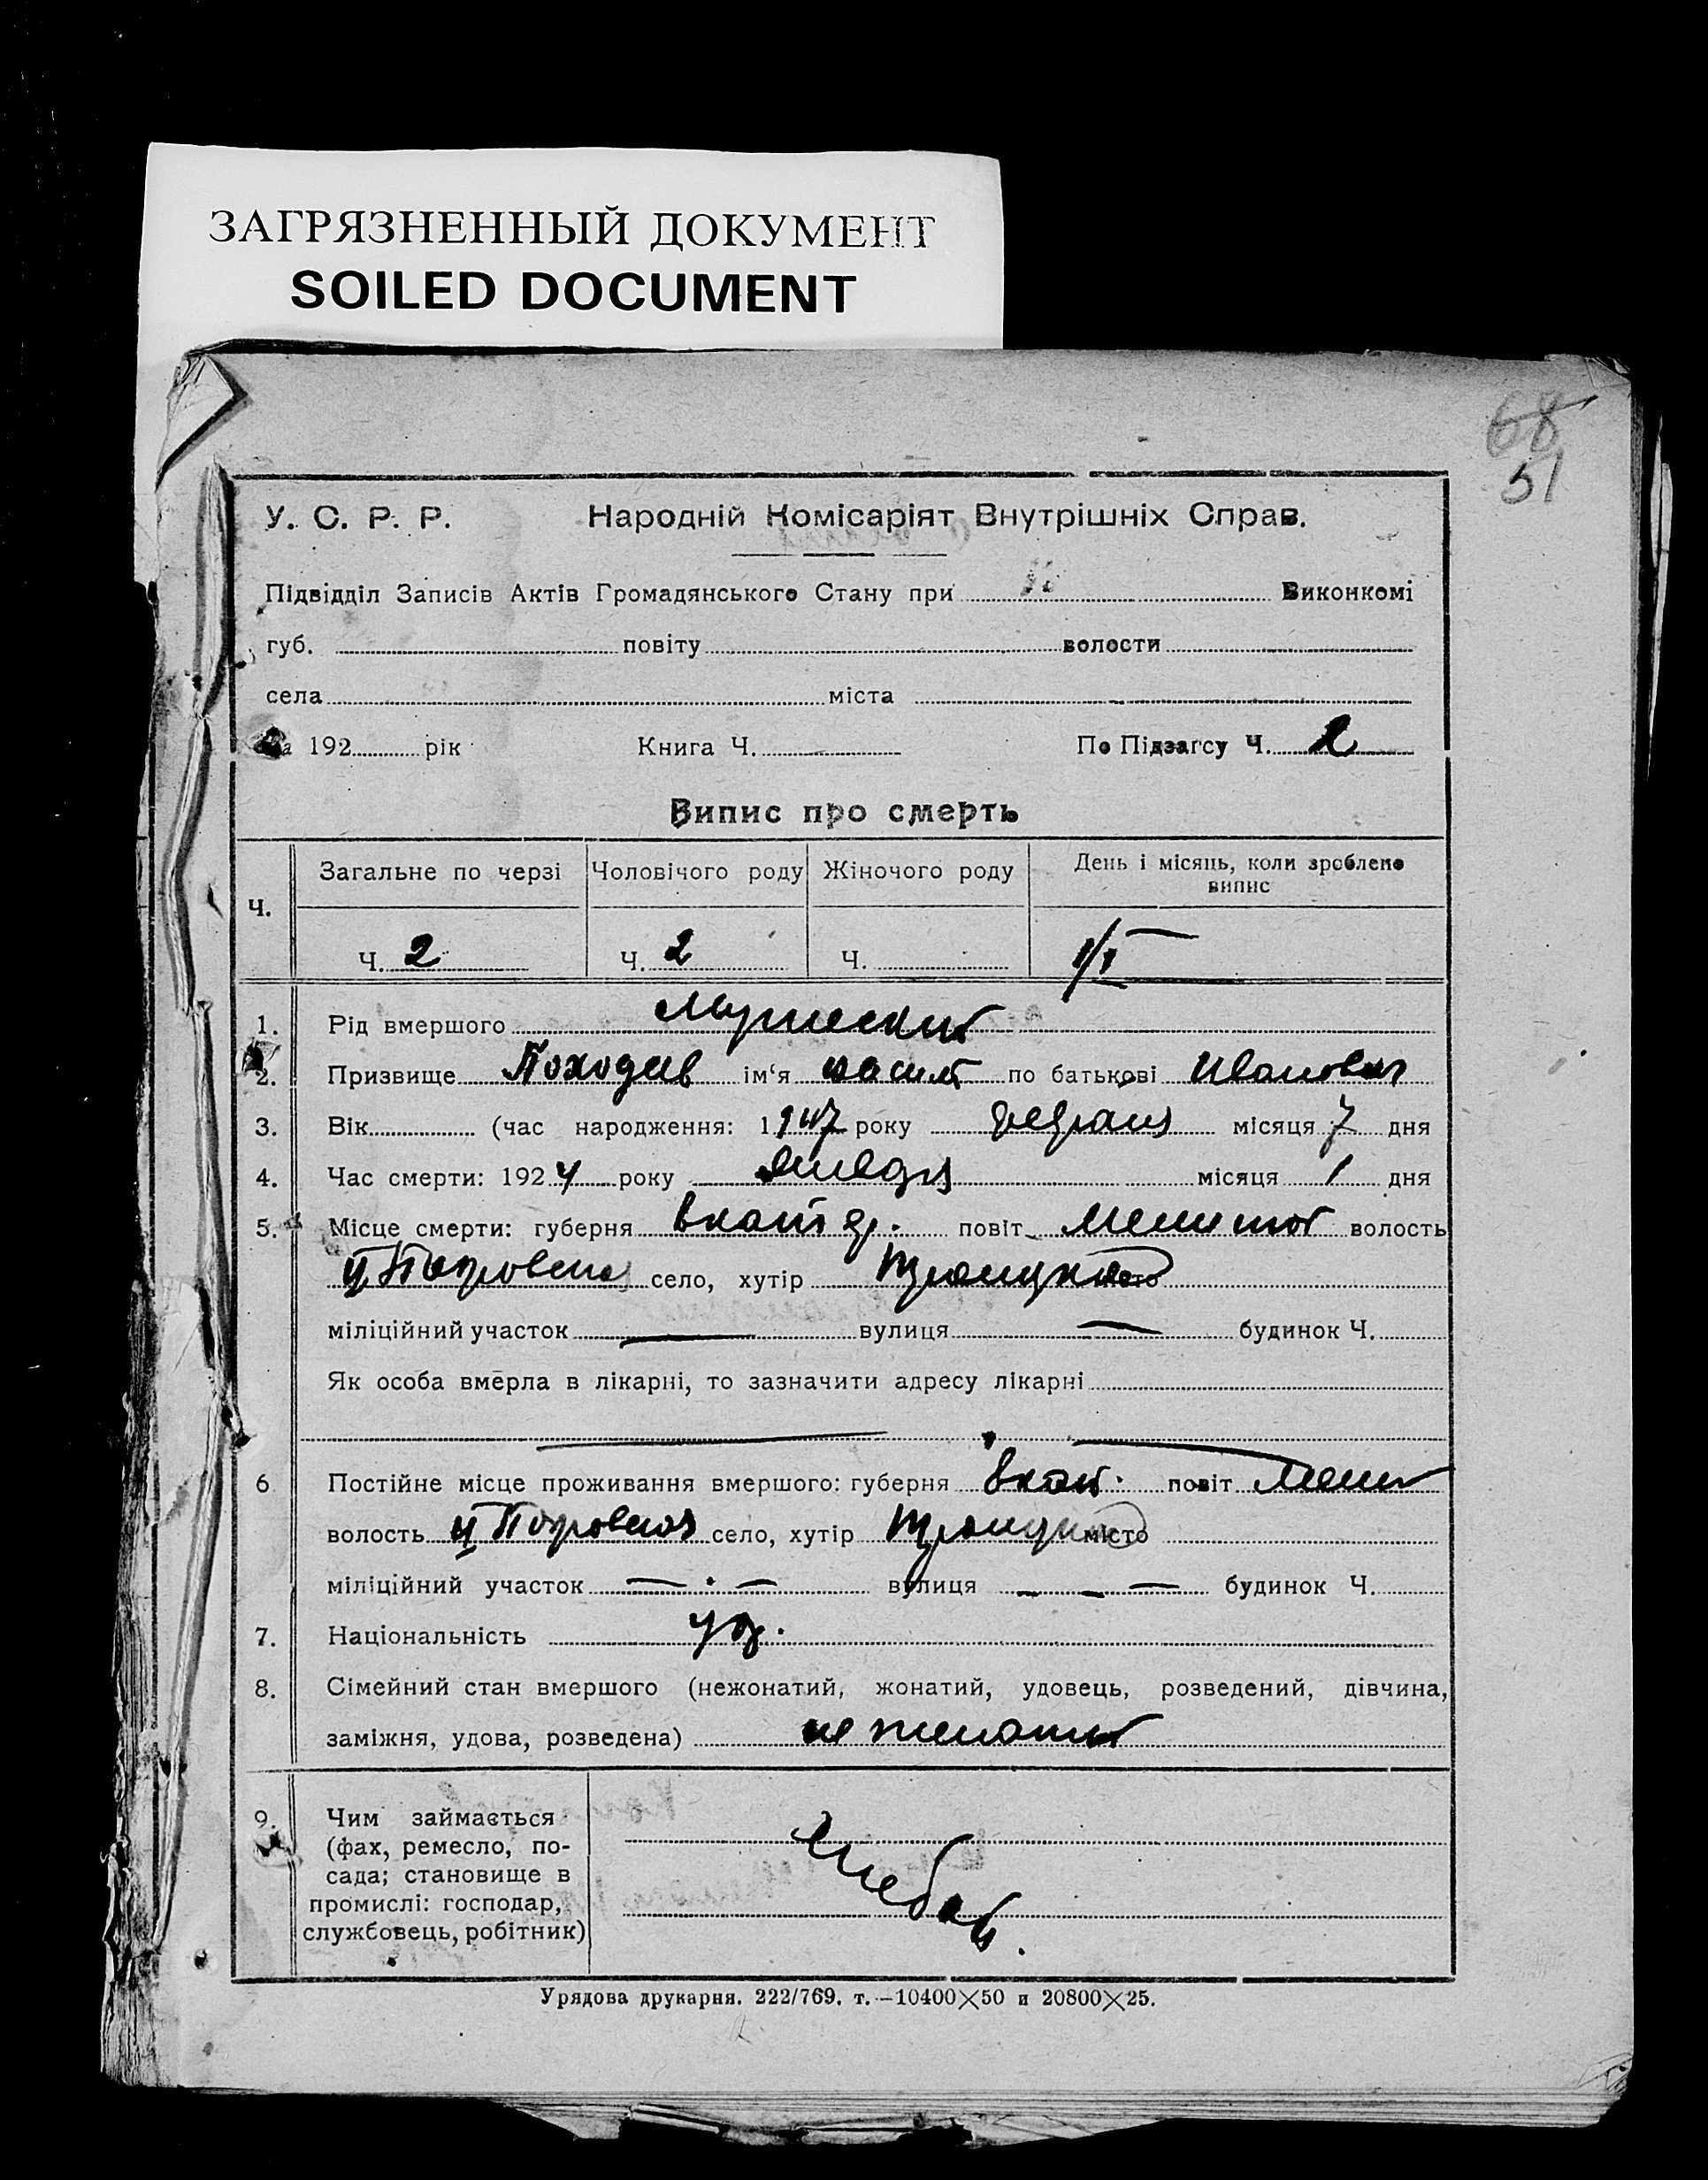 ЗАГРЯЗНЕННЫЙ ДОКУМЕНТ
SOILED DOCUMENT
68
51
У. С. Р. Р. Народній Комісаріят Внутрішніх Справ.
Підвідділ Записів Актів Громадянського Стану при Виконкомі
губ. повіту волости
села міста
за 192 рік Книга Ч. По Підзагсу Ч. 2
Випис про смерть
Ч. Загальне по черзі Чоловічого роду Жіночого роду День і місяць, коли зроблено
випис
Ч. 2 Ч. 2 Ч. 1/I
1. Рід вмершого Мужеский
2. Призвище Походив ім‘я Васил по батькові Иванович
3. Вік (час народження: 19 року февраля місяця 7 дня
4. Час смерти: 1924 року января місяця 1 дня
5. Місце смерти: губерня Екат повіт Мелитоп волость
II Петровская село, хутір Троицкое місто
міліційний участок вулиця будинок Ч.
Як особа вмерла в лікарні, то зазначити адресу лікарні
6 Постійне місце проживання вмершого: губерня Екат. повіт Мелит
волость II Петровская село, хутір Троицкое місто
міліційний участок вулиця будинок Ч.
7. Національність укр.
8. Сімейний стан вмершого (нежонатий, жонатий, удовець, розведений, дівчина,
заміжня, удова, розведена) не женатый
9. Чим займається
(фах, ремесло, по-
сада; становище в
промислі: господар,
службовець, робітник)
хлебоб.
Урядова друкарня. 222/769. т.—10400×50 и 20800×25.